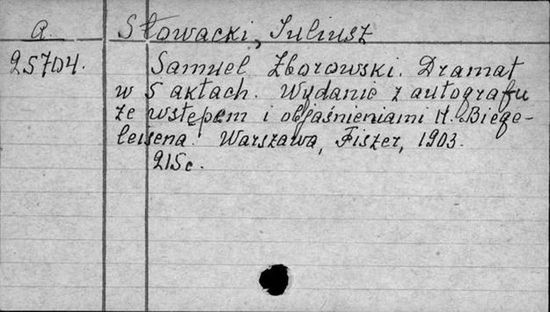 A. Słowacki, Juliusz
25704. Samuel Zborowski. Dramat
w 5 aktach. Wydanie z autografu
ze wstępem i objaśnieniami H. Biege-
leisena. Warszawa, Fiszer, 1903.
215c.